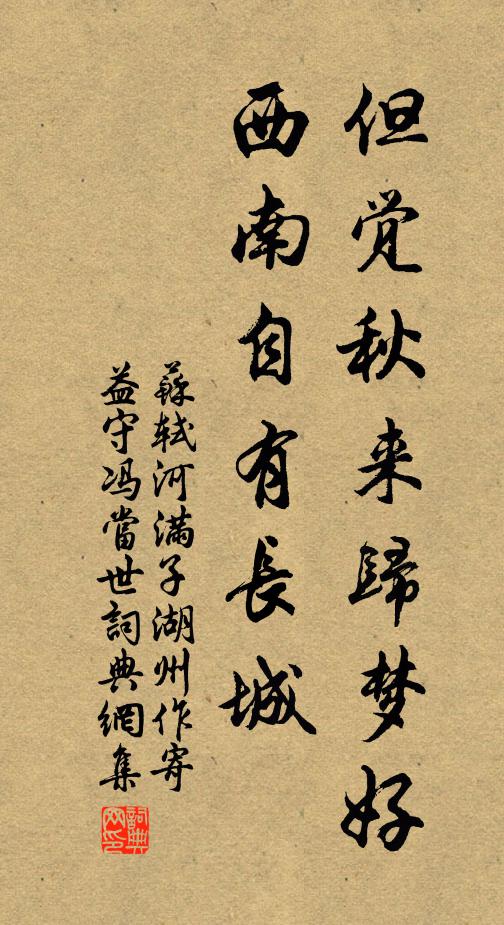 但觉秋来歸梦好
西南自有長城
蘇轼河满子湖州作寄
益守冯當世詞典網集
詞典网印